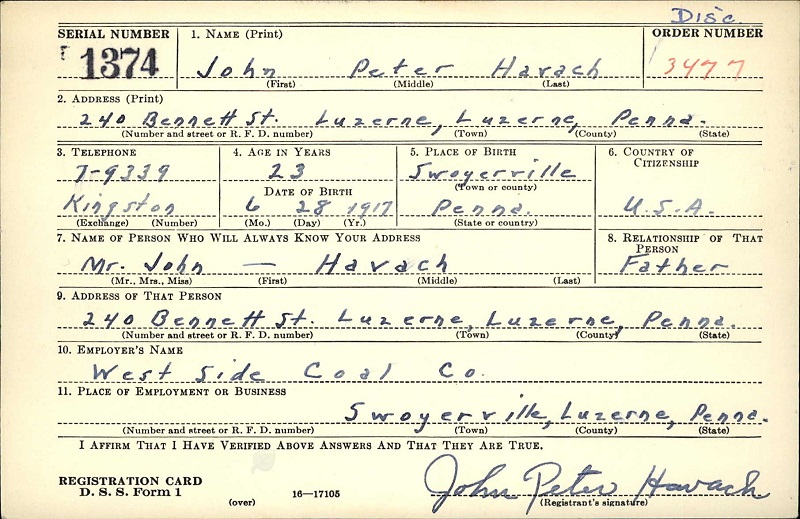 Disc.
SERIAL NUMBER 1. NAME (Print) ORDER NUMBER
1374 John Peter Havach 3477
(First) (Middle) (Last)
2. ADDRESS (Print)
240 Bennett St. Luzerne, Luzerne, Penna.
(Number and street or R. F. D. number) (Town) (County) (State)
3. TELEPHONE 4. AGE IN YEARS 5. PLACE OF BIRTH 6. COUNTRY OF CITIZENSHIP
7-9339 23 Swoyerville
DATE OF BIRTH (Town or county)
Kingston 6 28 1917 Penna. U.S.A.
(Exchange) (Number) (Mo.) (Day) (Yr.) (State or country)
7. NAME OF PERSON WHO WILL ALWAYS KNOW YOUR ADDRESS 8. RELATIONSHIP OF THAT PERSON
Mr. John — Havach Father
(Mr., Mrs., Miss) (First) (Middle) (Last)
9. ADDRESS OF THAT PERSON
240 Bennett St. Luzerne, Luzerne, Penna.
(Number and street or R. F. D. number) (Town) (County) (State)
10. EMPLOYER'S NAME
West Side Coal Co.
11. PLACE OF EMPLOYMENT OR BUSINESS
Swoyerville, Luzerne, Penna.
(Number and street or R. F. D. number) (Town) (County) (State)
I AFFIRM THAT I HAVE VERIFIED ABOVE ANSWERS AND THAT THEY ARE TRUE.
REGISTRATION CARD
D. S. S. Form 1 (over) 16—17105 John Peter Havach
(Registrant's signature)